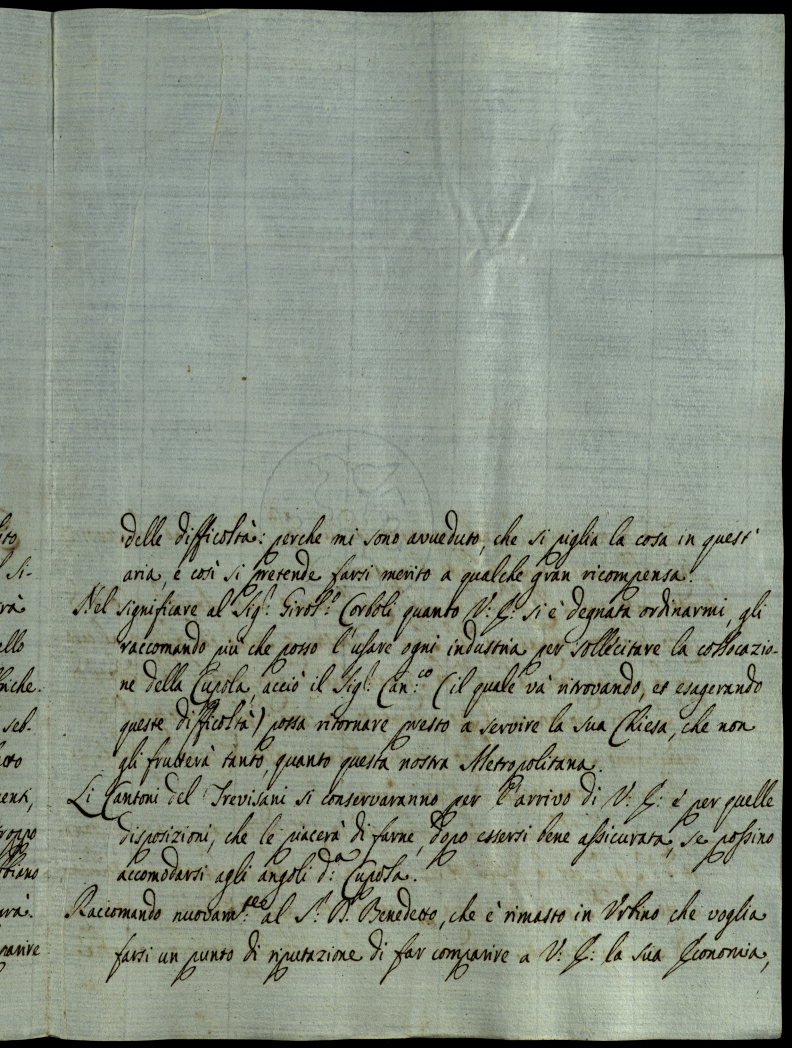 delle difficoltà: perche mi sono avveduto, che si piglia la cosa in quest'
aria, e così si pretende farsi merito a qualche gran ricompensa.
Nel significare al Sig.r Girol.o Cordoli quanto V: E: si è degnata ordinarmi, gli
raccomando più che posso l'usare ogni industria per sollecitare la collocazio-
ne della Cupola, acciò il Sig.r Can.co (il quale và ritrovando, et esagerando
queste difficoltà) possa ritornare presto a servire la sua Chiesa, che non
gli frutterà tanto, quanto questa nostra Metropolitana.
Li Cantoni del Trevisani si conservaranno per l'arrivo di V: E: e per quelle
disposizioni, che le piacerà di farne, dopo essersi bene assicurata, se possino
accomodarsi agli angoli d.a Cupola.
Raccomando nuovam.te al S.r D. Benedetto, che è rimasto in Urbino che voglia
farsi un punto di riputazione di far comparire a V: E: la sua Economia,
ito
l si-
rà
ello
friche.
seb-
noto
enti,
troppo
bbiano
urà.
parire